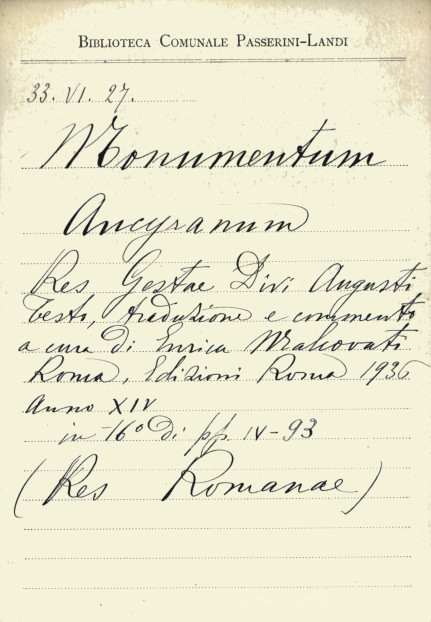 BIBLIOTECA COMUNALE PASSERINI-LANDI
33. VI. 27.
Monumentum
Ancyranum
Res Gestae Divi Augusti
testo, traduzione e commento
a cura di Enrica Malcovati
Roma, Edizioni Roma 1936
Anno XIV
in 16° di pp. IV-93
(Res Romanae)